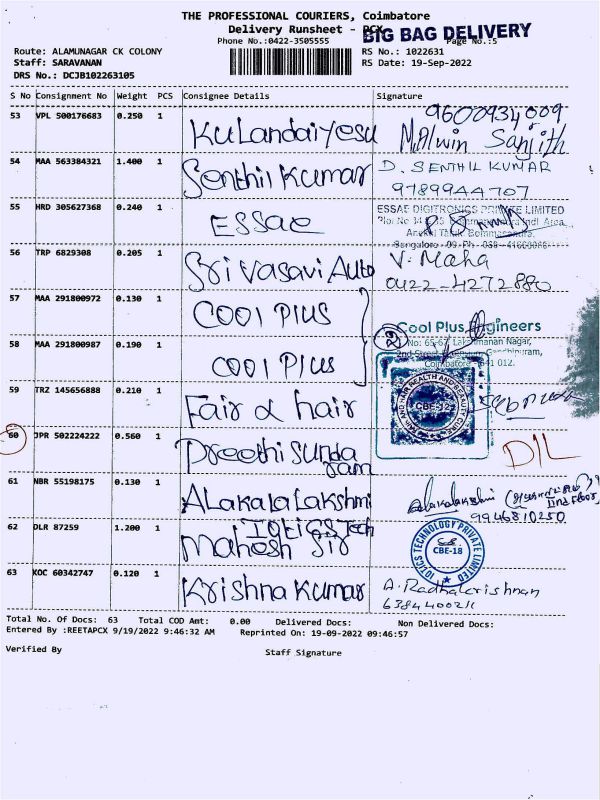 THE PROFESSIONAL COURIERS, Coimbatore
Delivery Runsheet - PCX
BIG BAG DELIVERY
Phone No.:0422-3505555
Page No.:5
Route: ALAMUNAGAR CK COLONY
RS No.: 1022631
Staff: SARAVANAN
RS Date: 19-Sep-2022
DRS No.: DCJB102263105
S No Consignment No Weight PCS Consignee Details Signature
53 VPL 500176683 0.250 1 Kulandaiyesu 9600934009
M.Alwin Sanjith
54 MAA 563384321 1.400 1 Senthil Kumar D. SENTHIL KUMAR
9789944707
55 HRD 305627368 0.240 1 ESSAE ESSAE DIGITRONICS PRIVATE LIMITED
56 TRP 6829308 0.205 1 Srivasavi Auto V. Maha
0422-4272880
57 MAA 291800972 0.130 1 COOl PlUS
Cool Plus Engineers
No: 65-67, Lakshmanan Nagar,
Coimbatore 641 012.
29
58 MAA 291800987 0.190 1 COOl PlUS
59 TRZ 145656888 0.210 1 Fair & hair
HAIR AND HAIR HEALTH AND BEAUTY
CBE-12
60 JPR 502224222 0.560 1 Preethi Sundaram D/L
61 NBR 55198175 0.130 1 ALakalaLakshmi Alakalakshmi
9946810250
62 DLR 87259 1.200 1 IQtiCS Tech
Mahesh Sir
TECHNOLOGY PRIVATE LIMITED
CBE-18
63 KOC 60342747 0.120 1 Krishna Kumar A. Radhakrishnan
6384400211
Total No. Of Docs: 63 Total COD Amt: 0.00 Delivered Docs: Non Delivered Docs:
Entered By :REETAPCX 9/19/2022 9:46:32 AM Reprinted On: 19-09-2022 09:46:57
Verified By Staff Signature